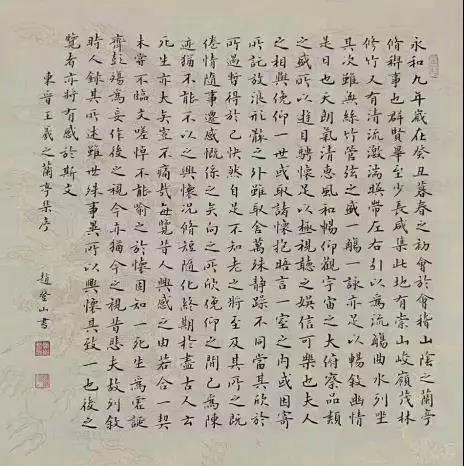 永和九年歲在癸丑暮春之初會於會稽山陰之蘭亭
脩稧事也群賢畢至少長咸集此地有崇山峻嶺茂林
修竹又有清流激湍暎帶左右引以為流觴曲水列坐
其次雖無絲竹管弦之盛一觴一詠亦足以暢敘幽情
是日也天朗氣清惠風和暢仰觀宇宙之大俯察品類
之盛所以遊目騁懷足以極視聽之娛信可樂也夫人
之相與俛仰一世或取諸懷抱晤言一室之內或因寄
所託放浪形骸之外雖取舍萬殊靜躁不同當其欣於
所遇暫得於己快然自足不知老之將至及其所之既
倦情隨事遷感慨係之矣向之所欣俛仰之間已為陳
迹猶不能不以之興懷況脩短隨化終期於盡古人云
死生亦大矣豈不痛哉每覽昔人興感之由若合一契
未嘗不臨文嗟悼不能喻之於懷固知一死生為虛誕
齊彭殤為妄作後之視今亦猶今之視昔悲夫故列敘
時人錄其所述雖世殊事異所以興懷其致一也後之
覽者亦將有感於斯文
東晉王羲之蘭亭集序
趙登山書